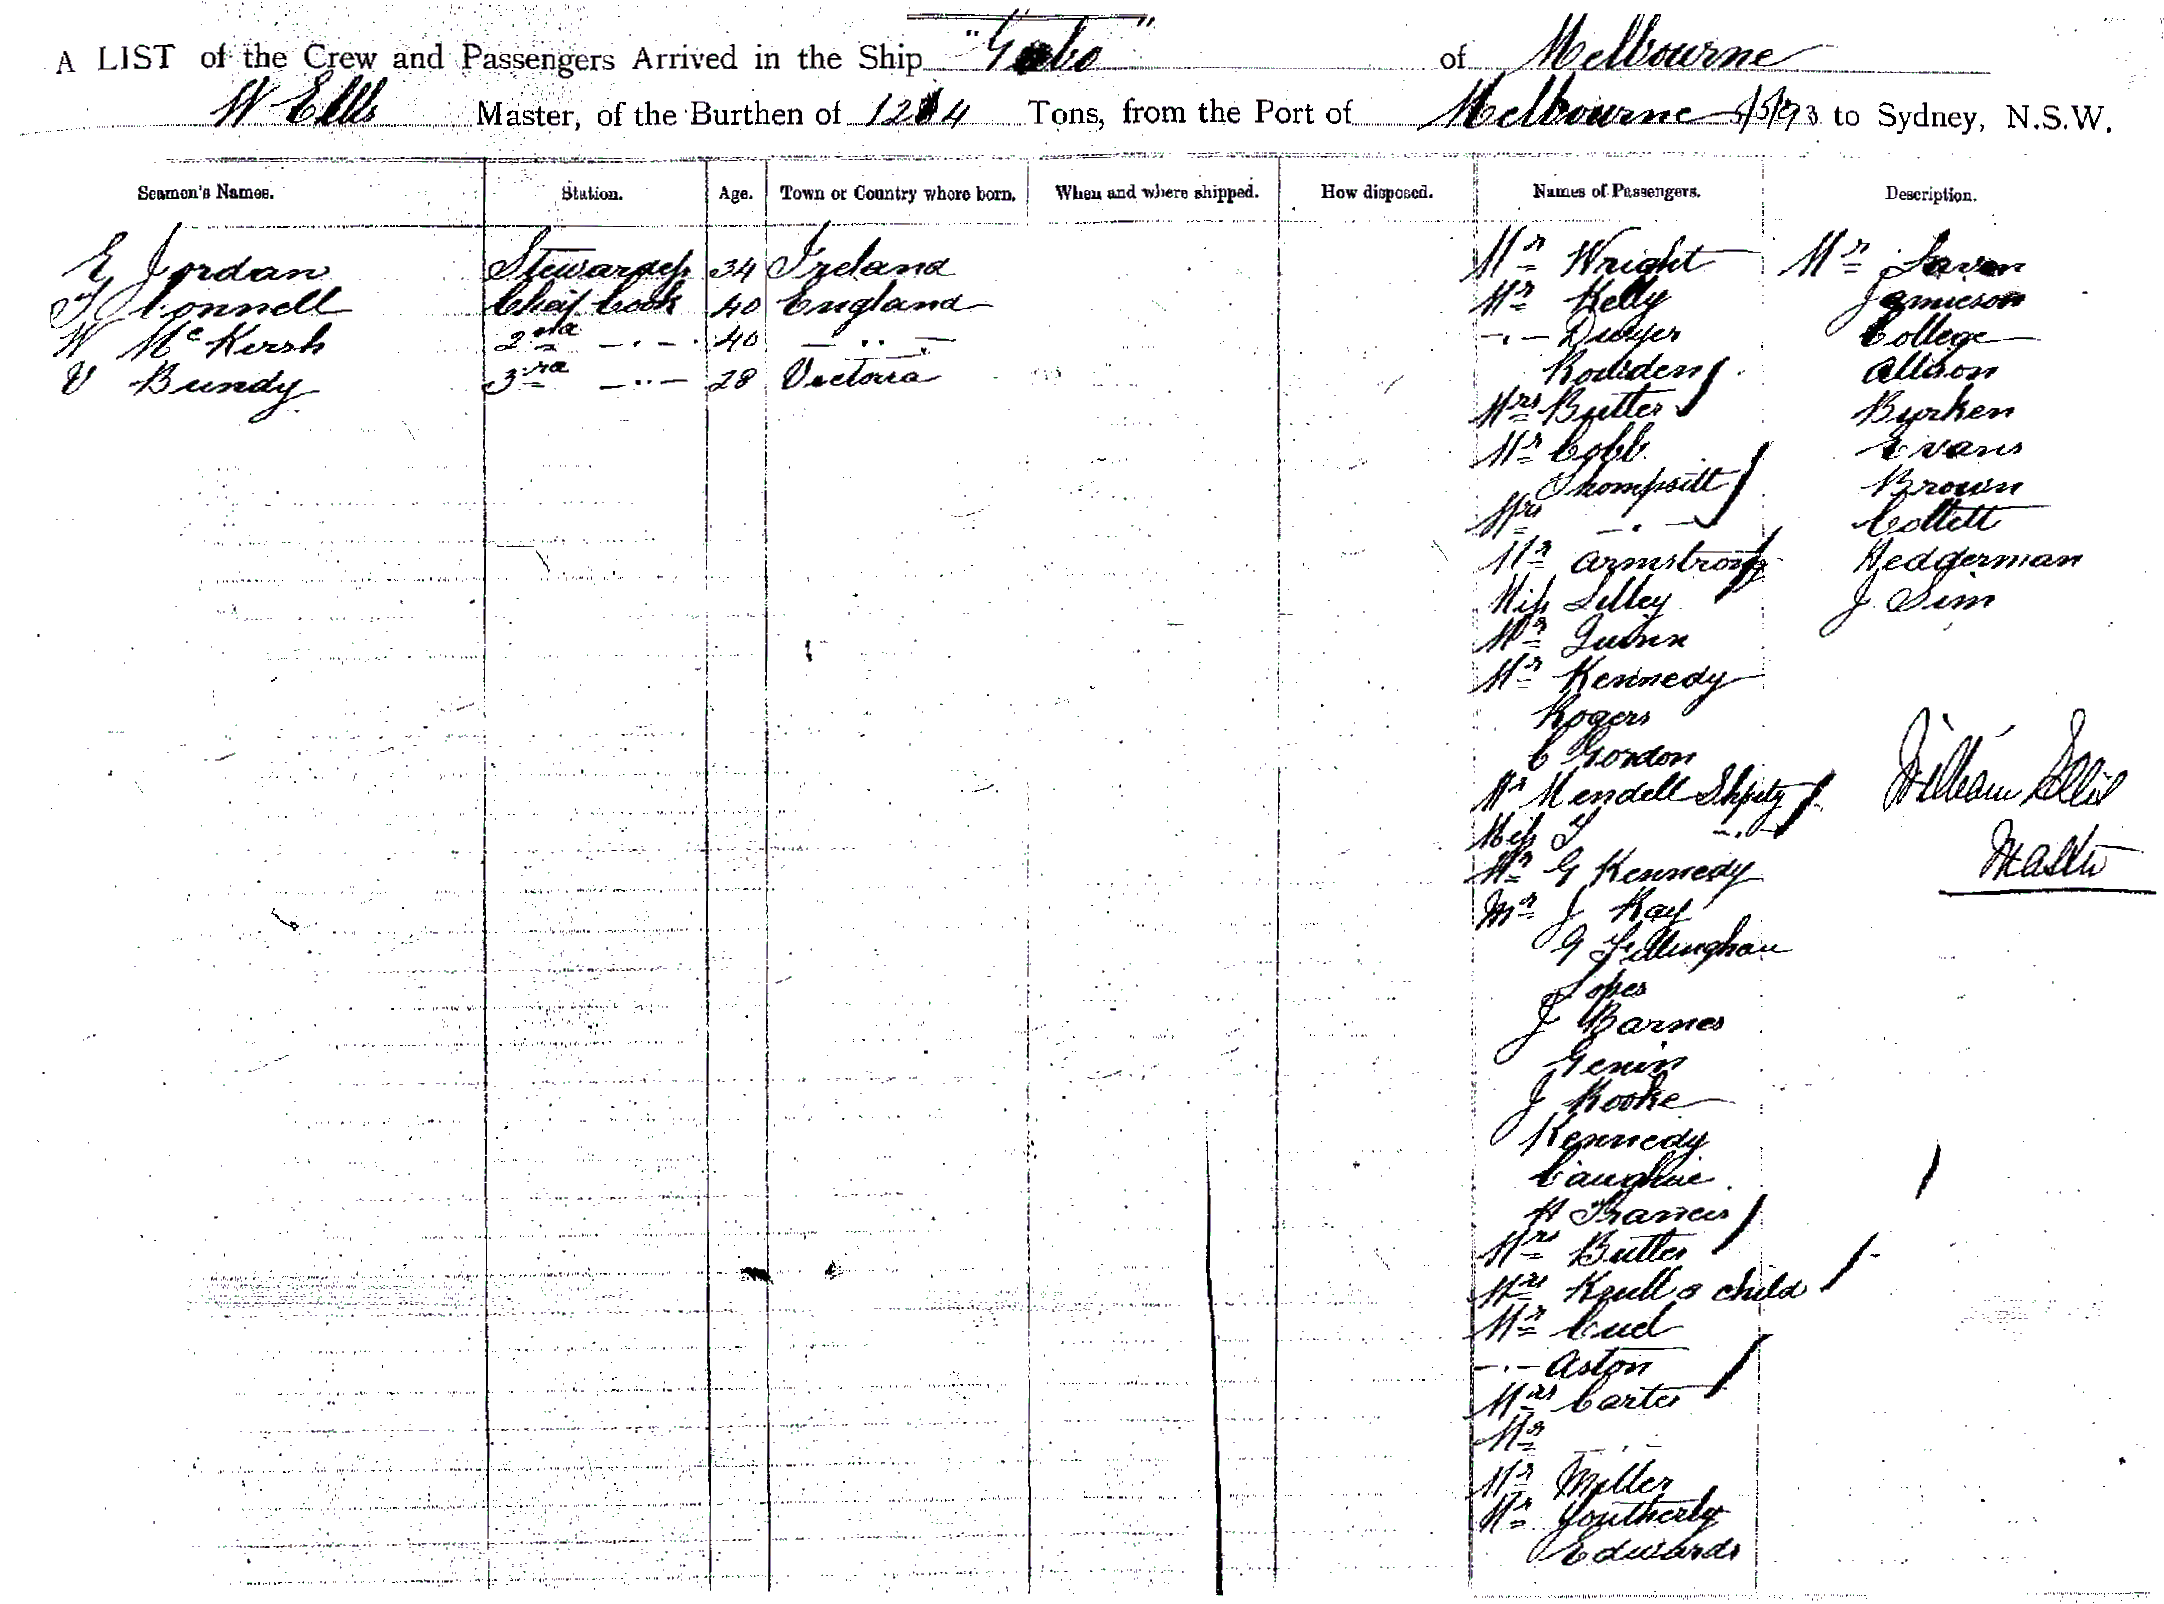 A LIST of the Crew and Passengers Arrived in the Ship "Gabo" of Melbourne
W Ellis Master, of the Burthen of 1264 Tons, from the Port of Melbourne 5/5/93 to Sydney, N.S.W.
Seamen's Names. Station. Age. Town or Country where born. When and where shipped. How disposed. Names of Passengers. Description.
E Jordan Stewardess 34 Ireland Mr Wright Mr
T Connell Chief Cook 40 England Mr Kelly Jamieson
W McKersh 2nd -"- 40 -"- -"- Dwyer College
V Bundy 3rd -"- 28 Victoria Rowden Allison
Mrs Butter Burken
Mr Cobb Evans
Thompsitt Brown
Mrs -"- Collett
Mr Armstrong Hedderman
Miss Lilley J Sim
Mr Quinn
Mr Kennedy
Rogers
C Gordon
Mr Mendell William Ellis
Miss -"-
Mr G Kennedy Master
Mr J Kay
G Fillingham
Lopes
J Barnes
Genin
J Rooke
Kennedy
H Francis
Mrs Butler
Mrs Krull & child
Mr Cud
-"- Aston
Mrs Carter
Mr -"-
Mr Miller
Mr Youtherly
Edwards